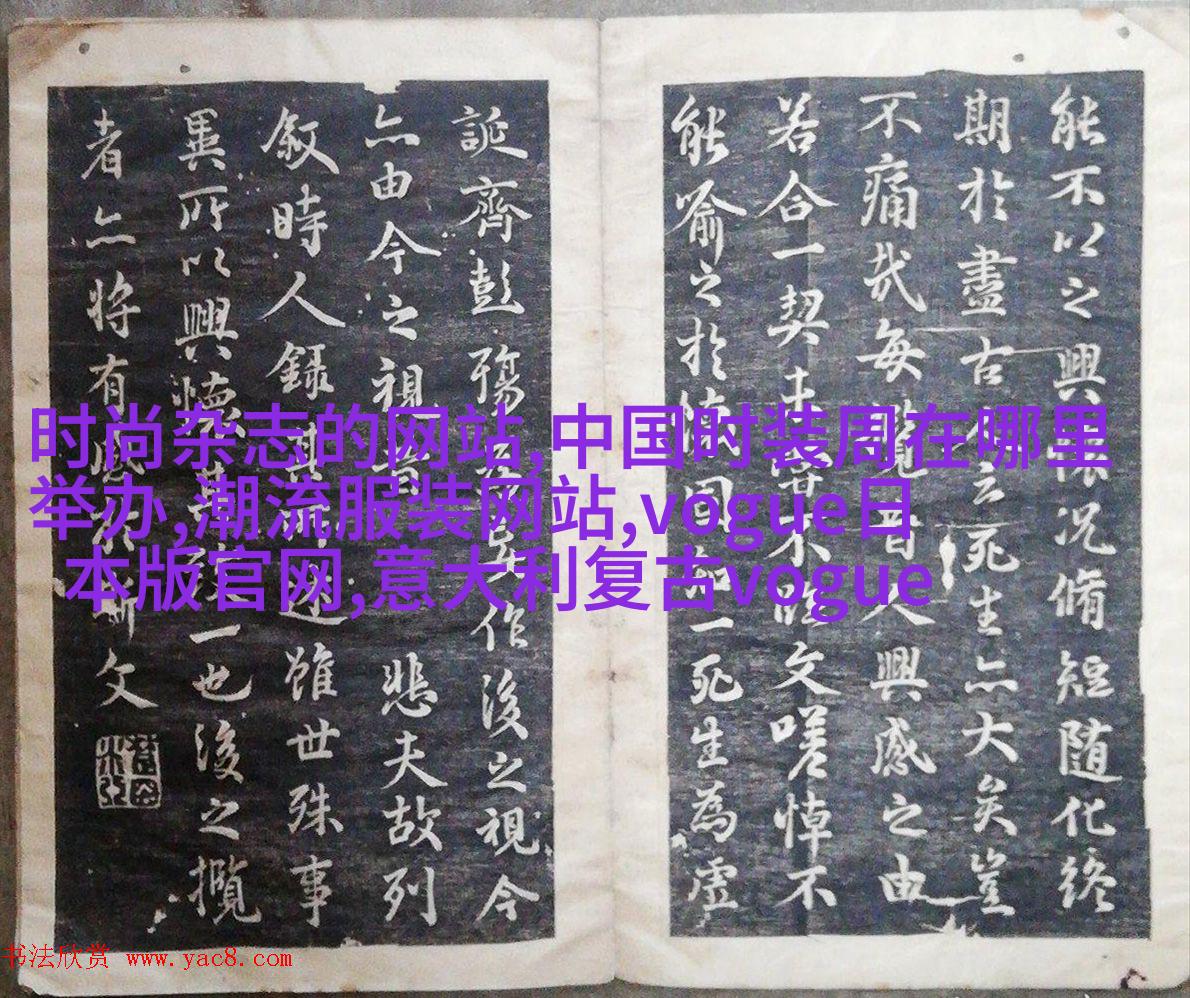 能不以之興懷况脩短随化終
期於盡古人云死生亦大矣豈
不痛哉每攬昔人興感之由
若合一契未嘗不臨文嗟悼不
能喻之於懷固知一死生為虛
誕齊彭殤為妄作後之視今
亦由今之視昔悲夫故列
叙時人錄其所述雖世殊事
異所以興懷其致一也後之攬
者亦将有感於斯文
时尚杂志的网站,中国时装周在哪里
举办,潮流服装网站,vogue日
本版官网,意大利复古vogue
书法欣赏 www.yac8.com